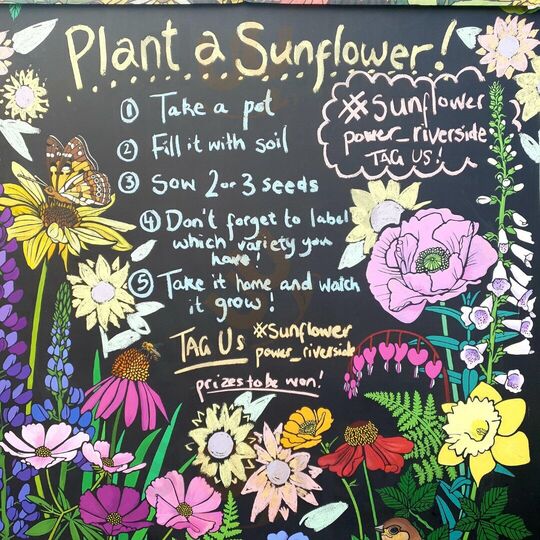 Plant a Sunflower!
① Take a pot
② Fill it with soil
③ Sow 2 or 3 seeds
④ Don't forget to label
which variety you
have!
⑤ Take it home and watch
it grow!
#Sunflower
power_riverside
TAG US!
TAG US #Sunflower
power_riverside
prizes to be won!